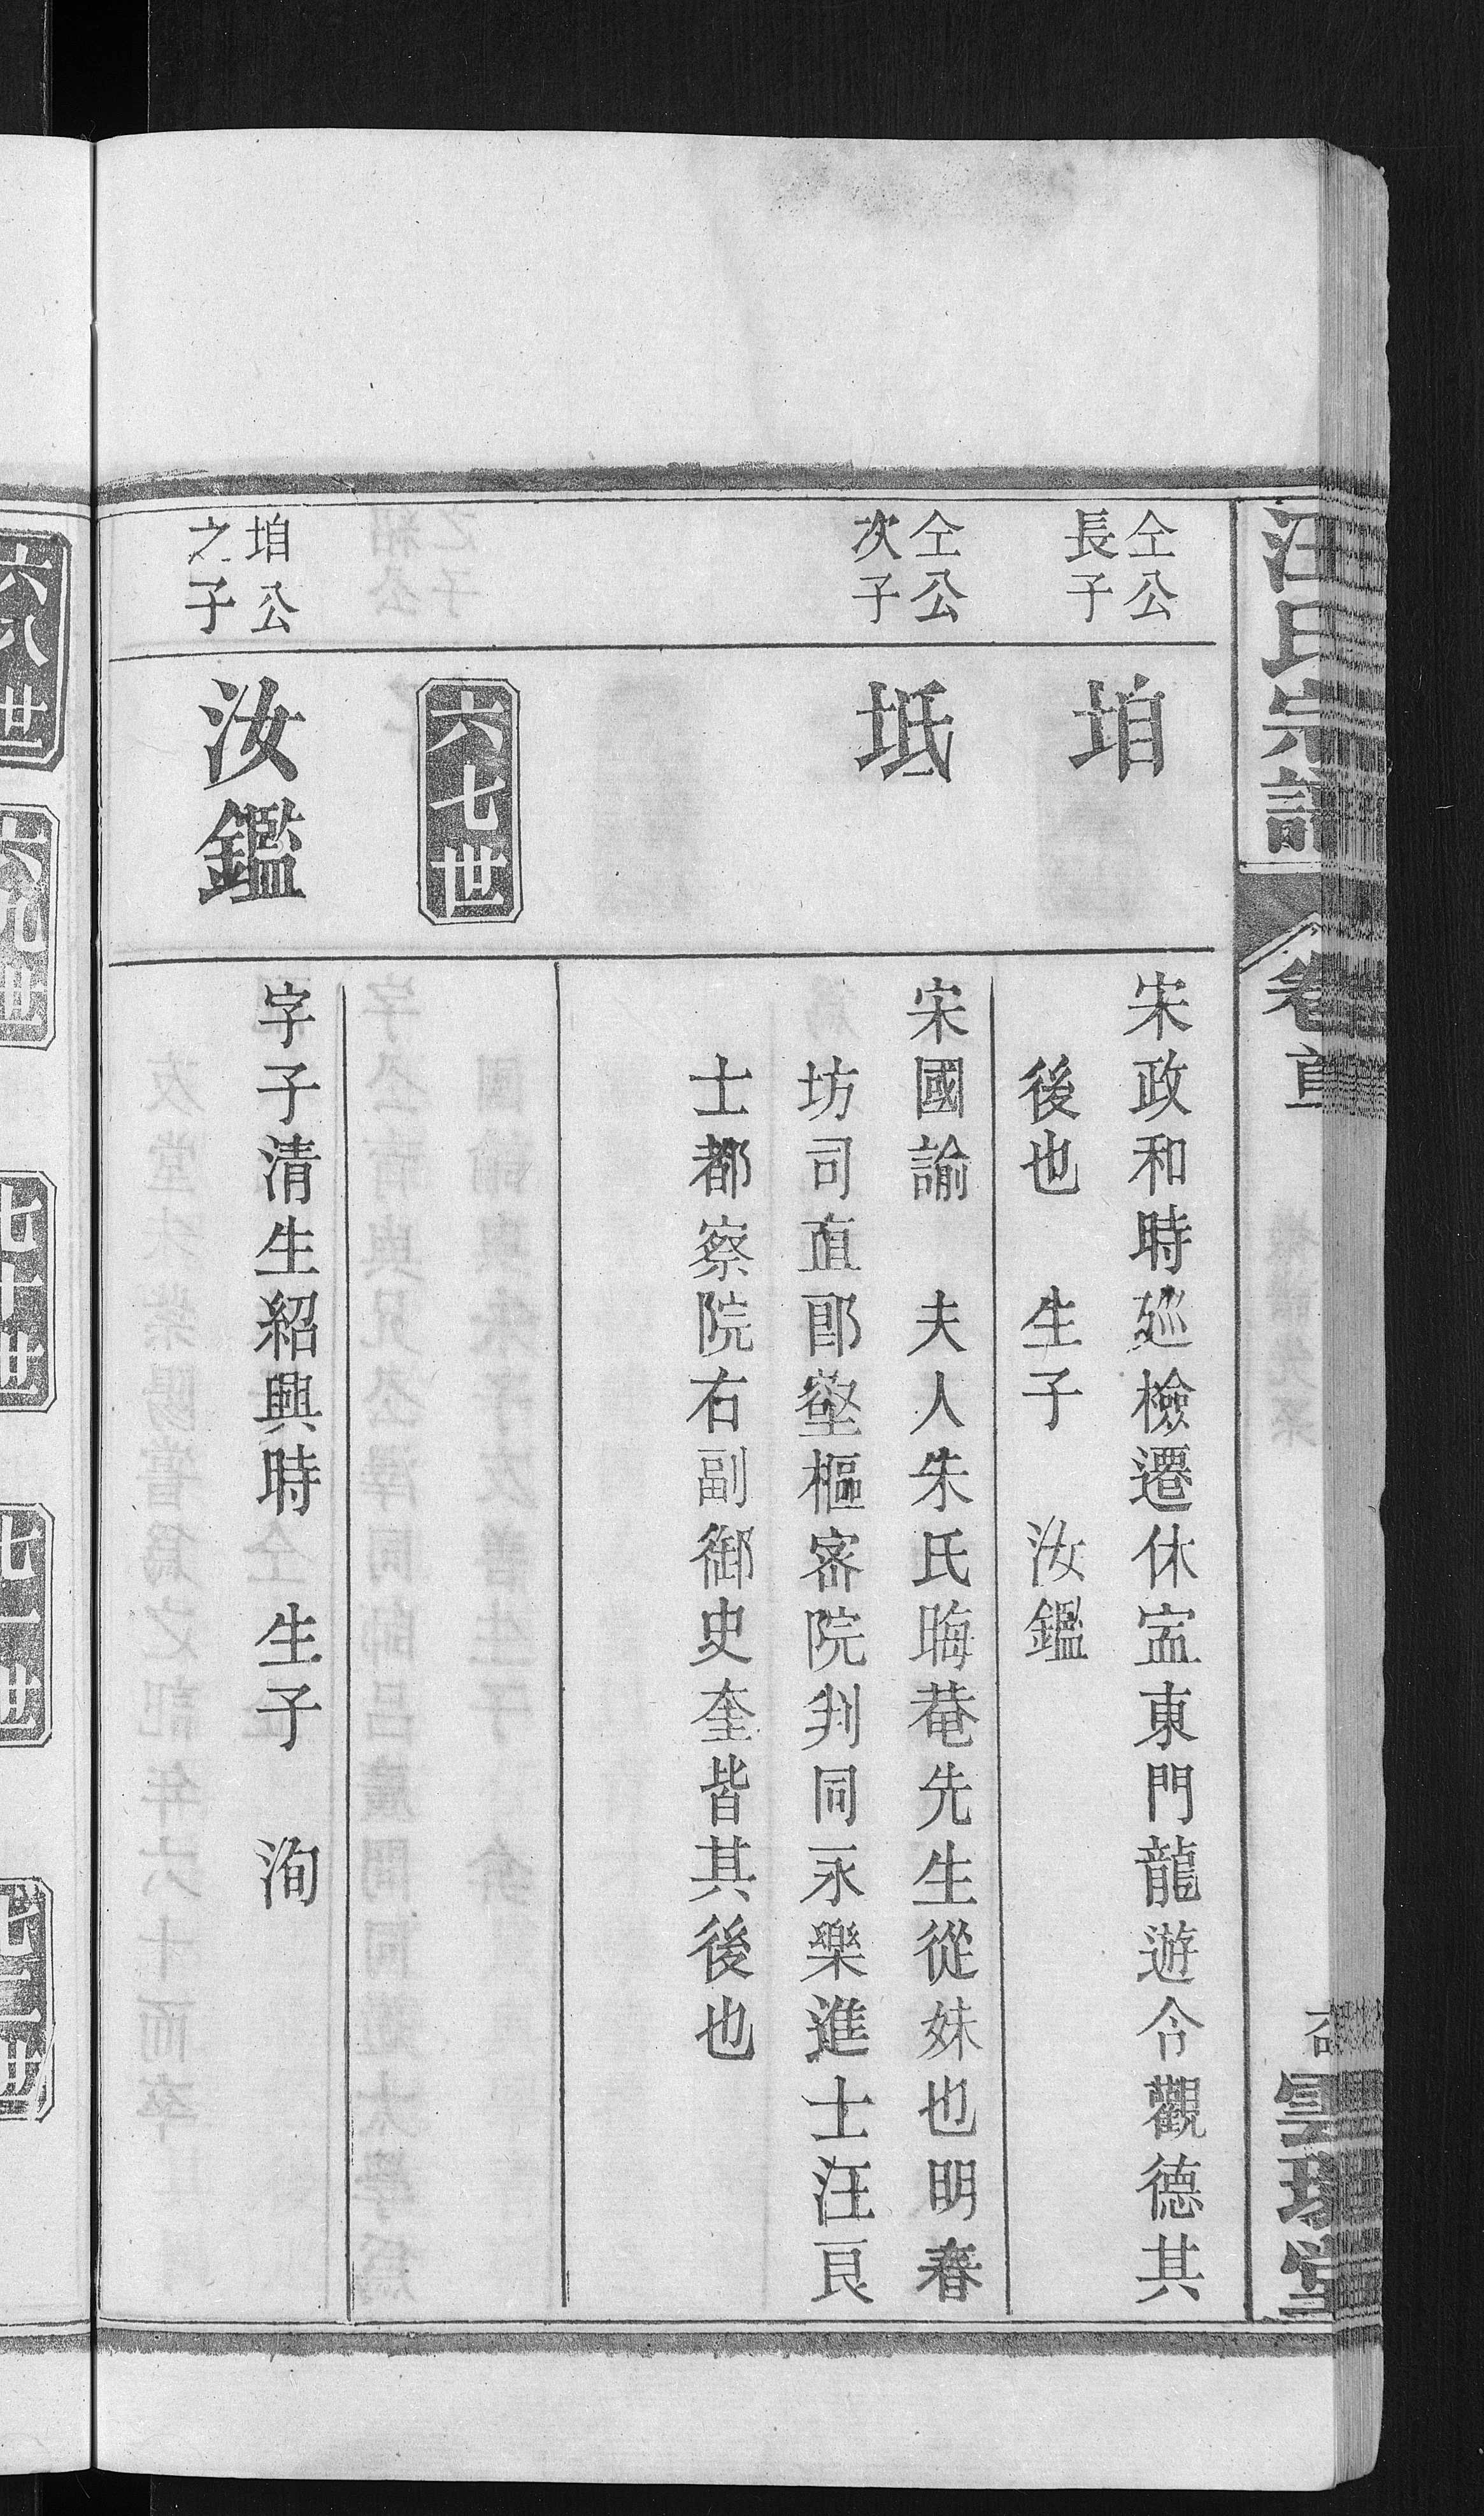 汪氏宗譜
卷首
仝公
長子
垍
宋政和時廵檢遷休寍東門龍遊令觀德其
後也　生子　汝鑑
仝公
次子
坻
宋國諭　夫人朱氏晦菴先生從妹也明春
坊司直郎壑樞密院判同永樂進士汪良
士都察院右副御史奎皆其後也
六七世
垍公
之子
汝鑑
字子清生紹興時　生子　洵
六八世
六九世
七十世
七一世